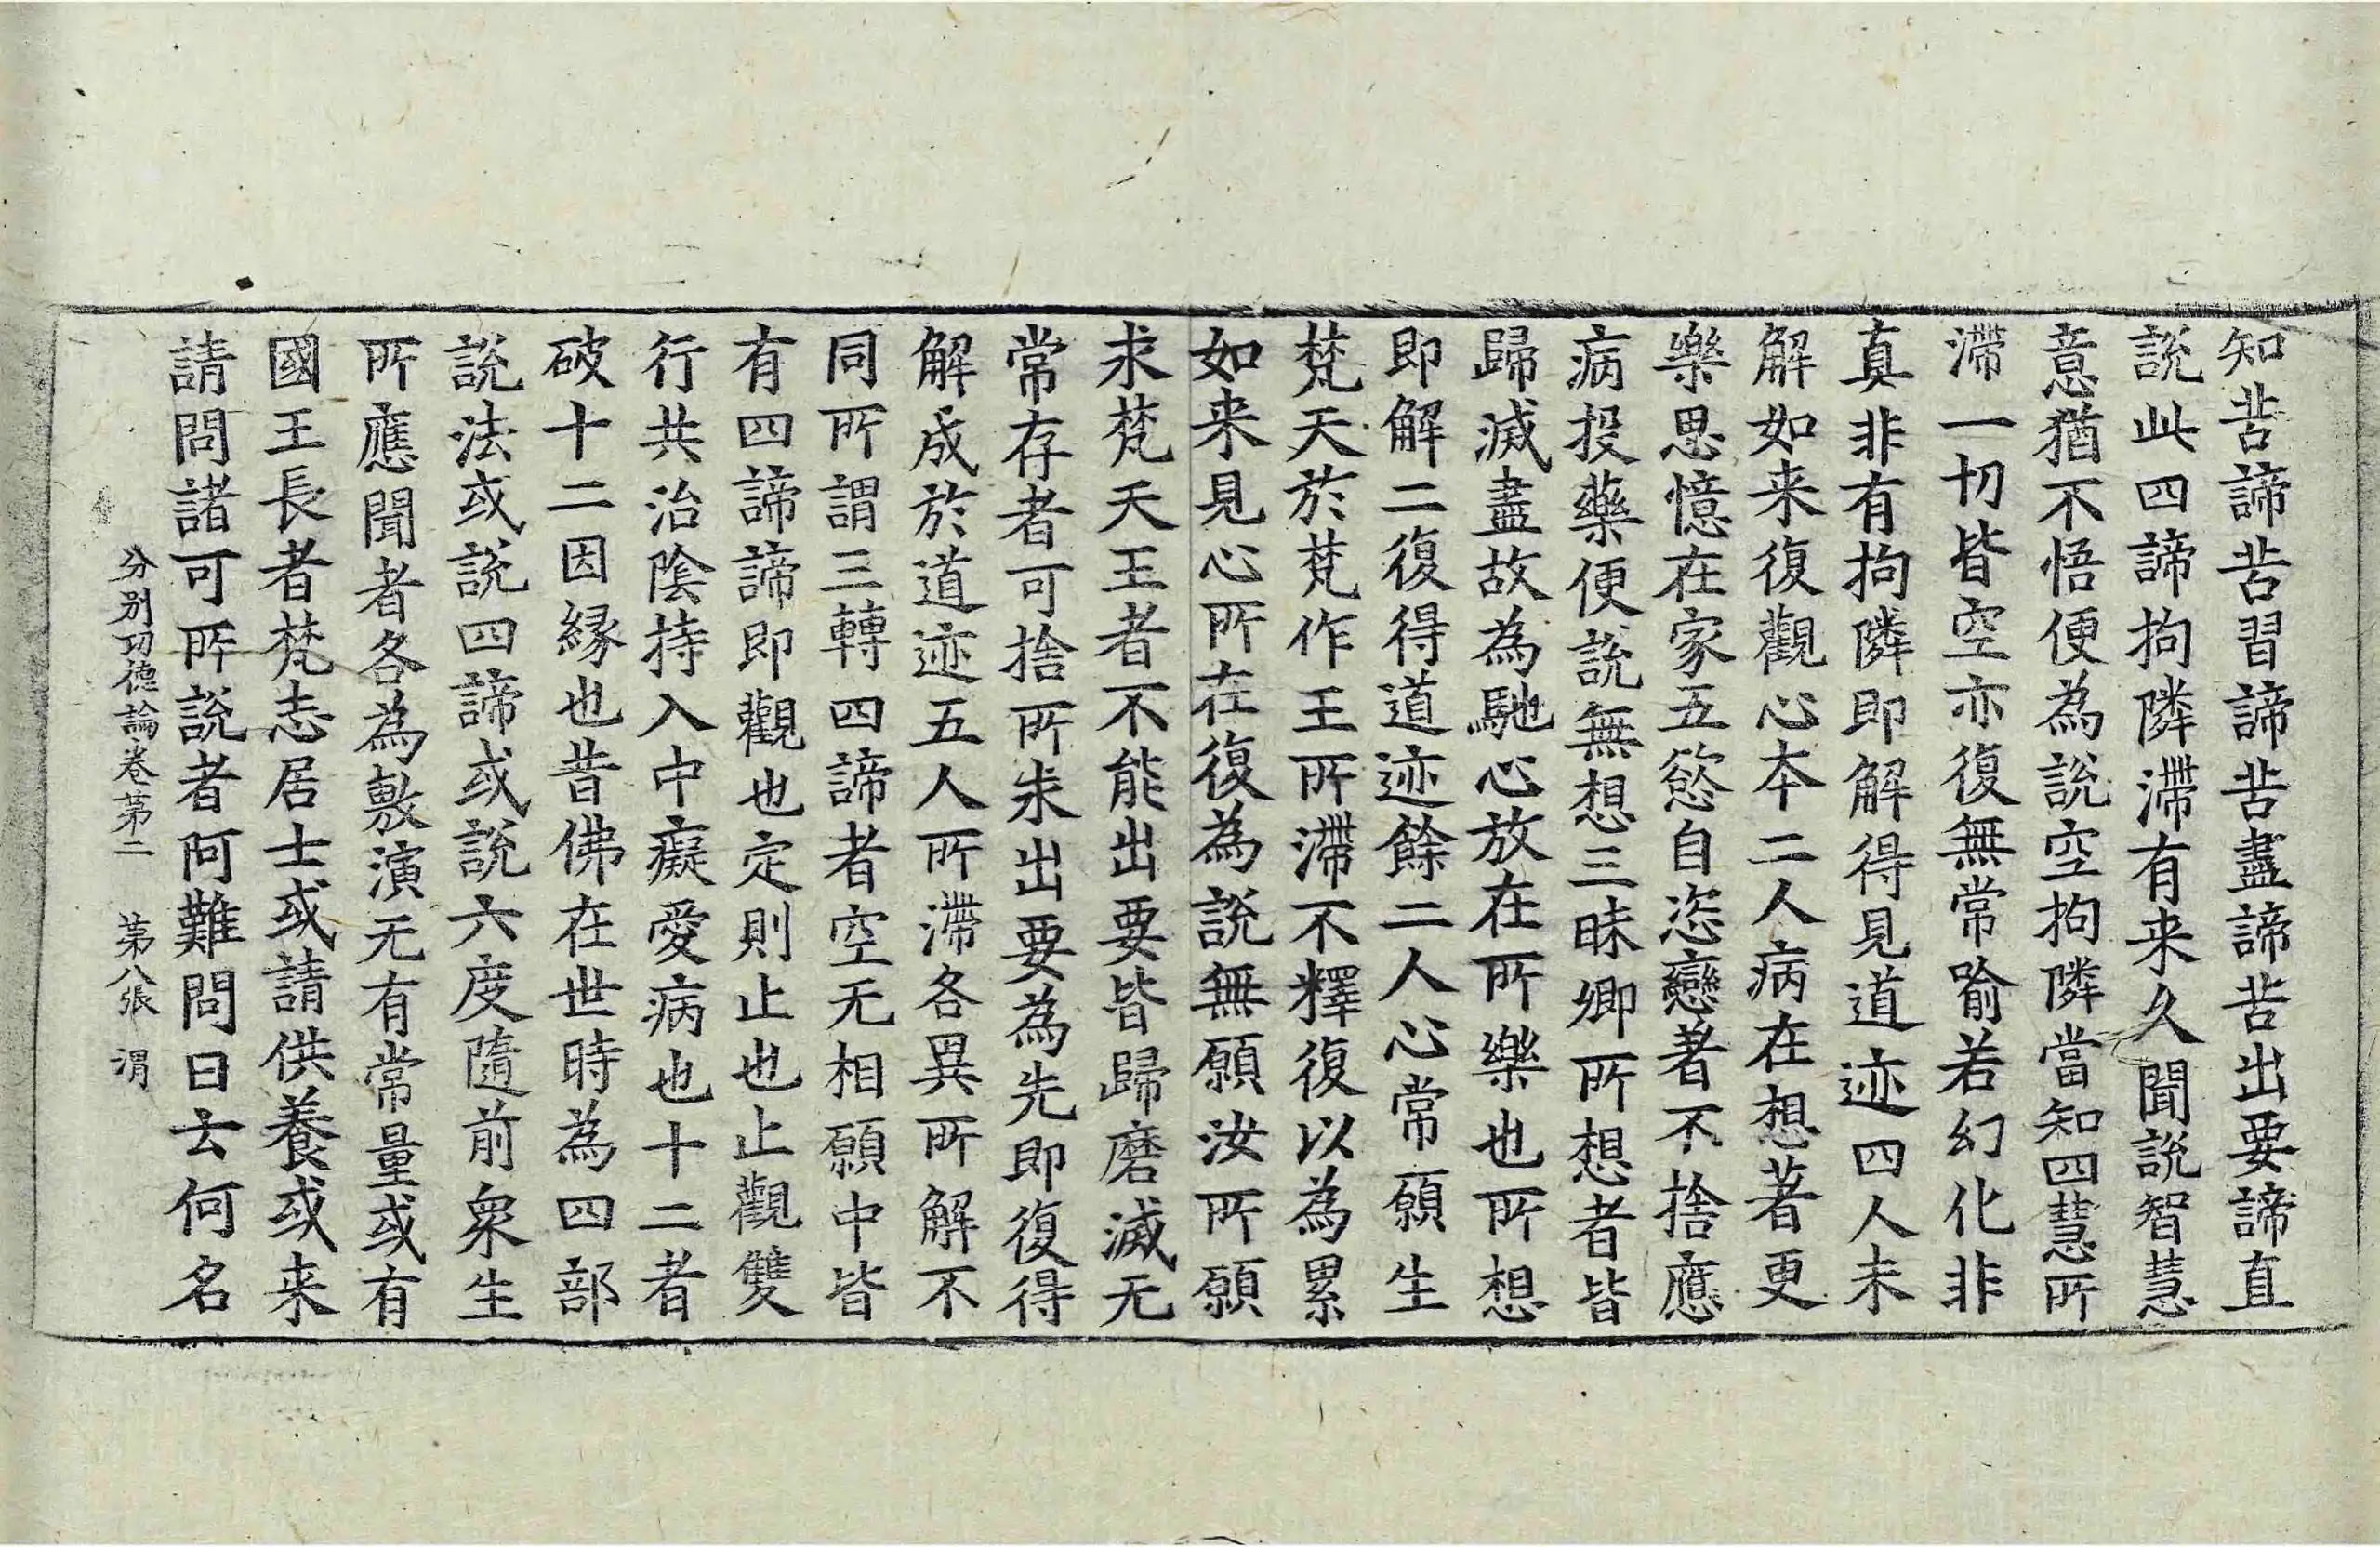 知苦諦苦習諦苦盡諦苦出要諦直
說此四諦拘隣滯有来久聞說智慧
意猶不悟便為說空拘隣當知四慧所
滯一切皆空亦復無常喻若幻化非
真非有拘隣即解得見道迹四人未
解如来復觀心本二人病在想著更
樂思憶在家五慾自恣戀著不捨應
病投藥便說無想三昧卿所想者皆
歸滅盡故為馳心放在所樂也所想
即解二復得道迹餘二人心常願生
梵天於梵作王所滯不釋復以為累
如来見心所在復為說無願汝所願
求梵天王者不能出要皆歸磨滅无
常存者可捨所求出要為先即復得
解成於道迹五人所滯各異所解不
同所謂三轉四諦者空无相願中皆
有四諦諦即觀也定則止也止觀雙
行共治陰持入中癡愛病也十二者
破十二因縁也昔佛在世時為四部
說法或說四諦或說六度隨前衆生
所應聞者各為敷演无有常量或有
國王長者梵志居士或請供養或来
請問諸可所說者阿難問曰云何名
分别功德論卷第二　第八張　渭